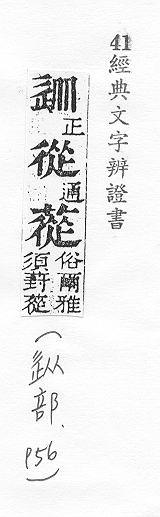 41 經典文字辨證書
正
從通
蓯俗爾雅
須葑蓯
(部. p56)